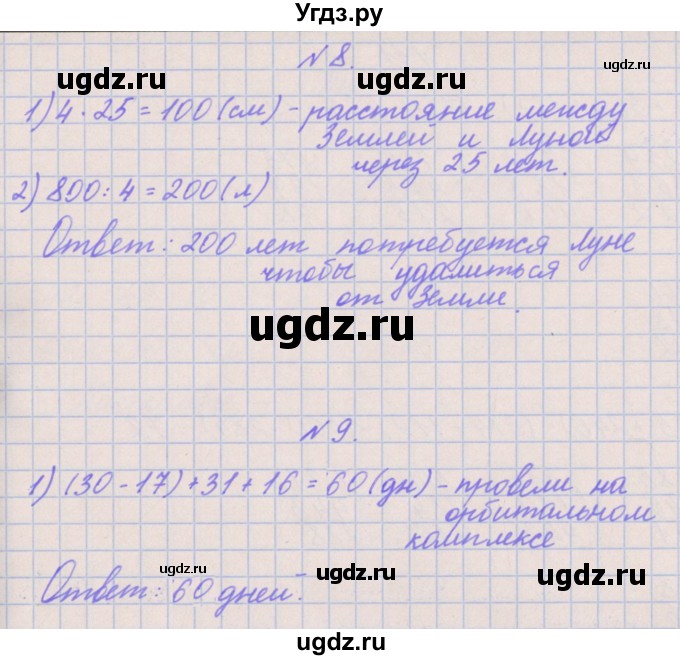 Угдз.ру
N 8.
1) 4 · 25 = 100 (см) - расстояние между
Землей и Луной
через 25 лет.
2) 800 : 4 = 200 (л)
Ответ: 200 лет потребуется Луне
чтобы удалиться
от Земле.
N 9.
1) (30 - 17) + 31 + 16 = 60 (дн) - провели на
орбитальном
комплексе
Ответ: 60 дней.
ugdz.ru
ugdz.ru
ugdz.ru
ugdz.ru
ugdz.ru
ugdz.ru
ugdz.ru
ugdz.ru
ugdz.ru
ugdz.ru
ugdz.ru